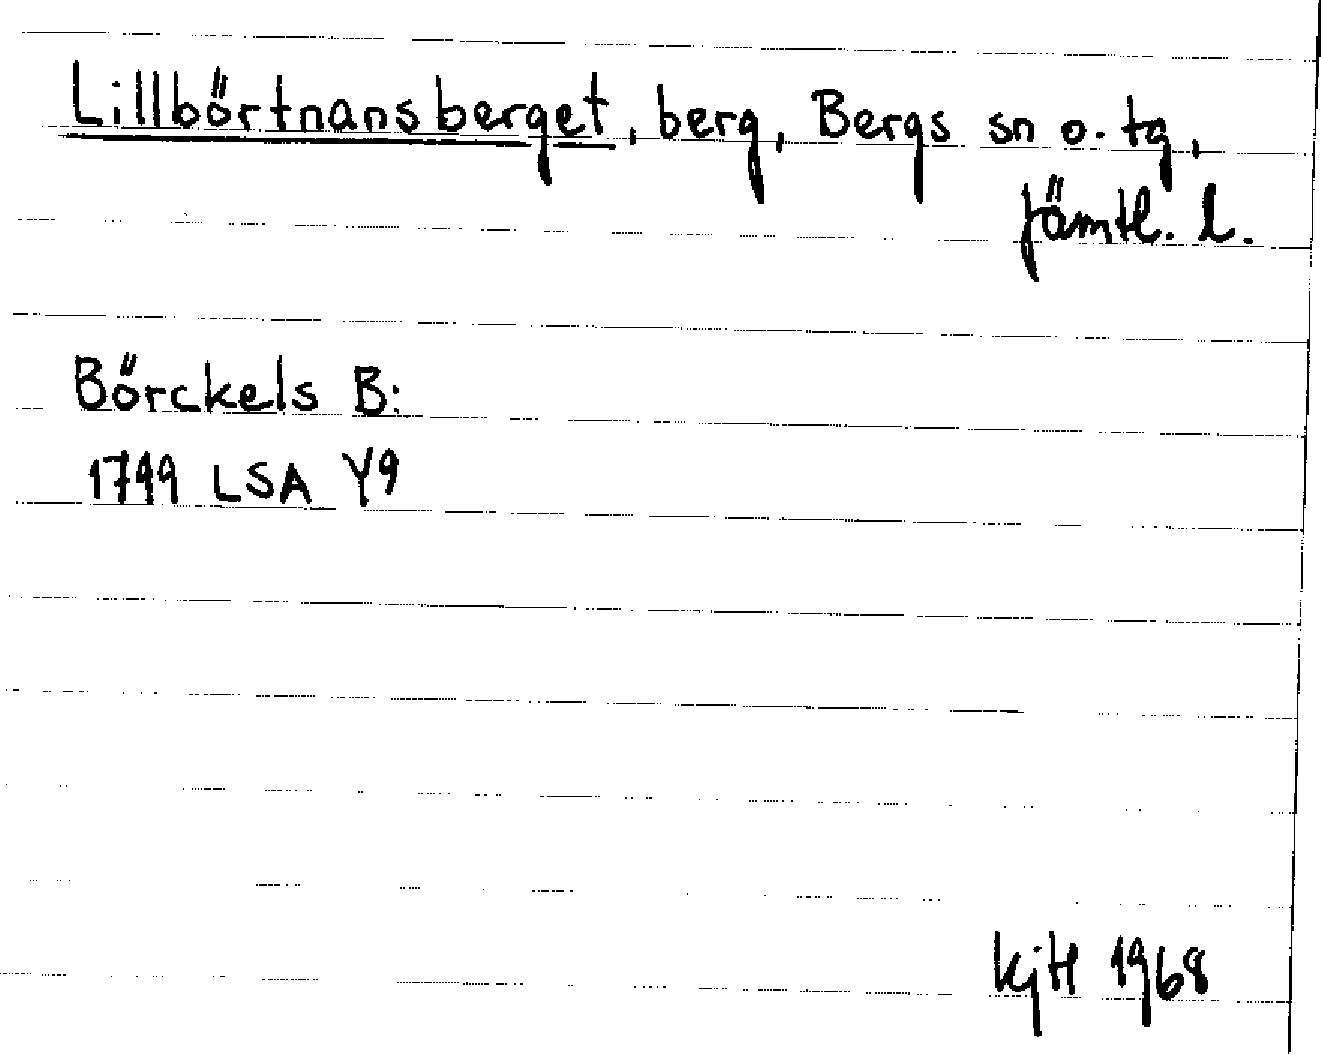 Lillbörtnansberget, berg, Bergs sn o. tg,
Jämtl. l.
Börckels B:
1799 LSA Y9
KjH 1968